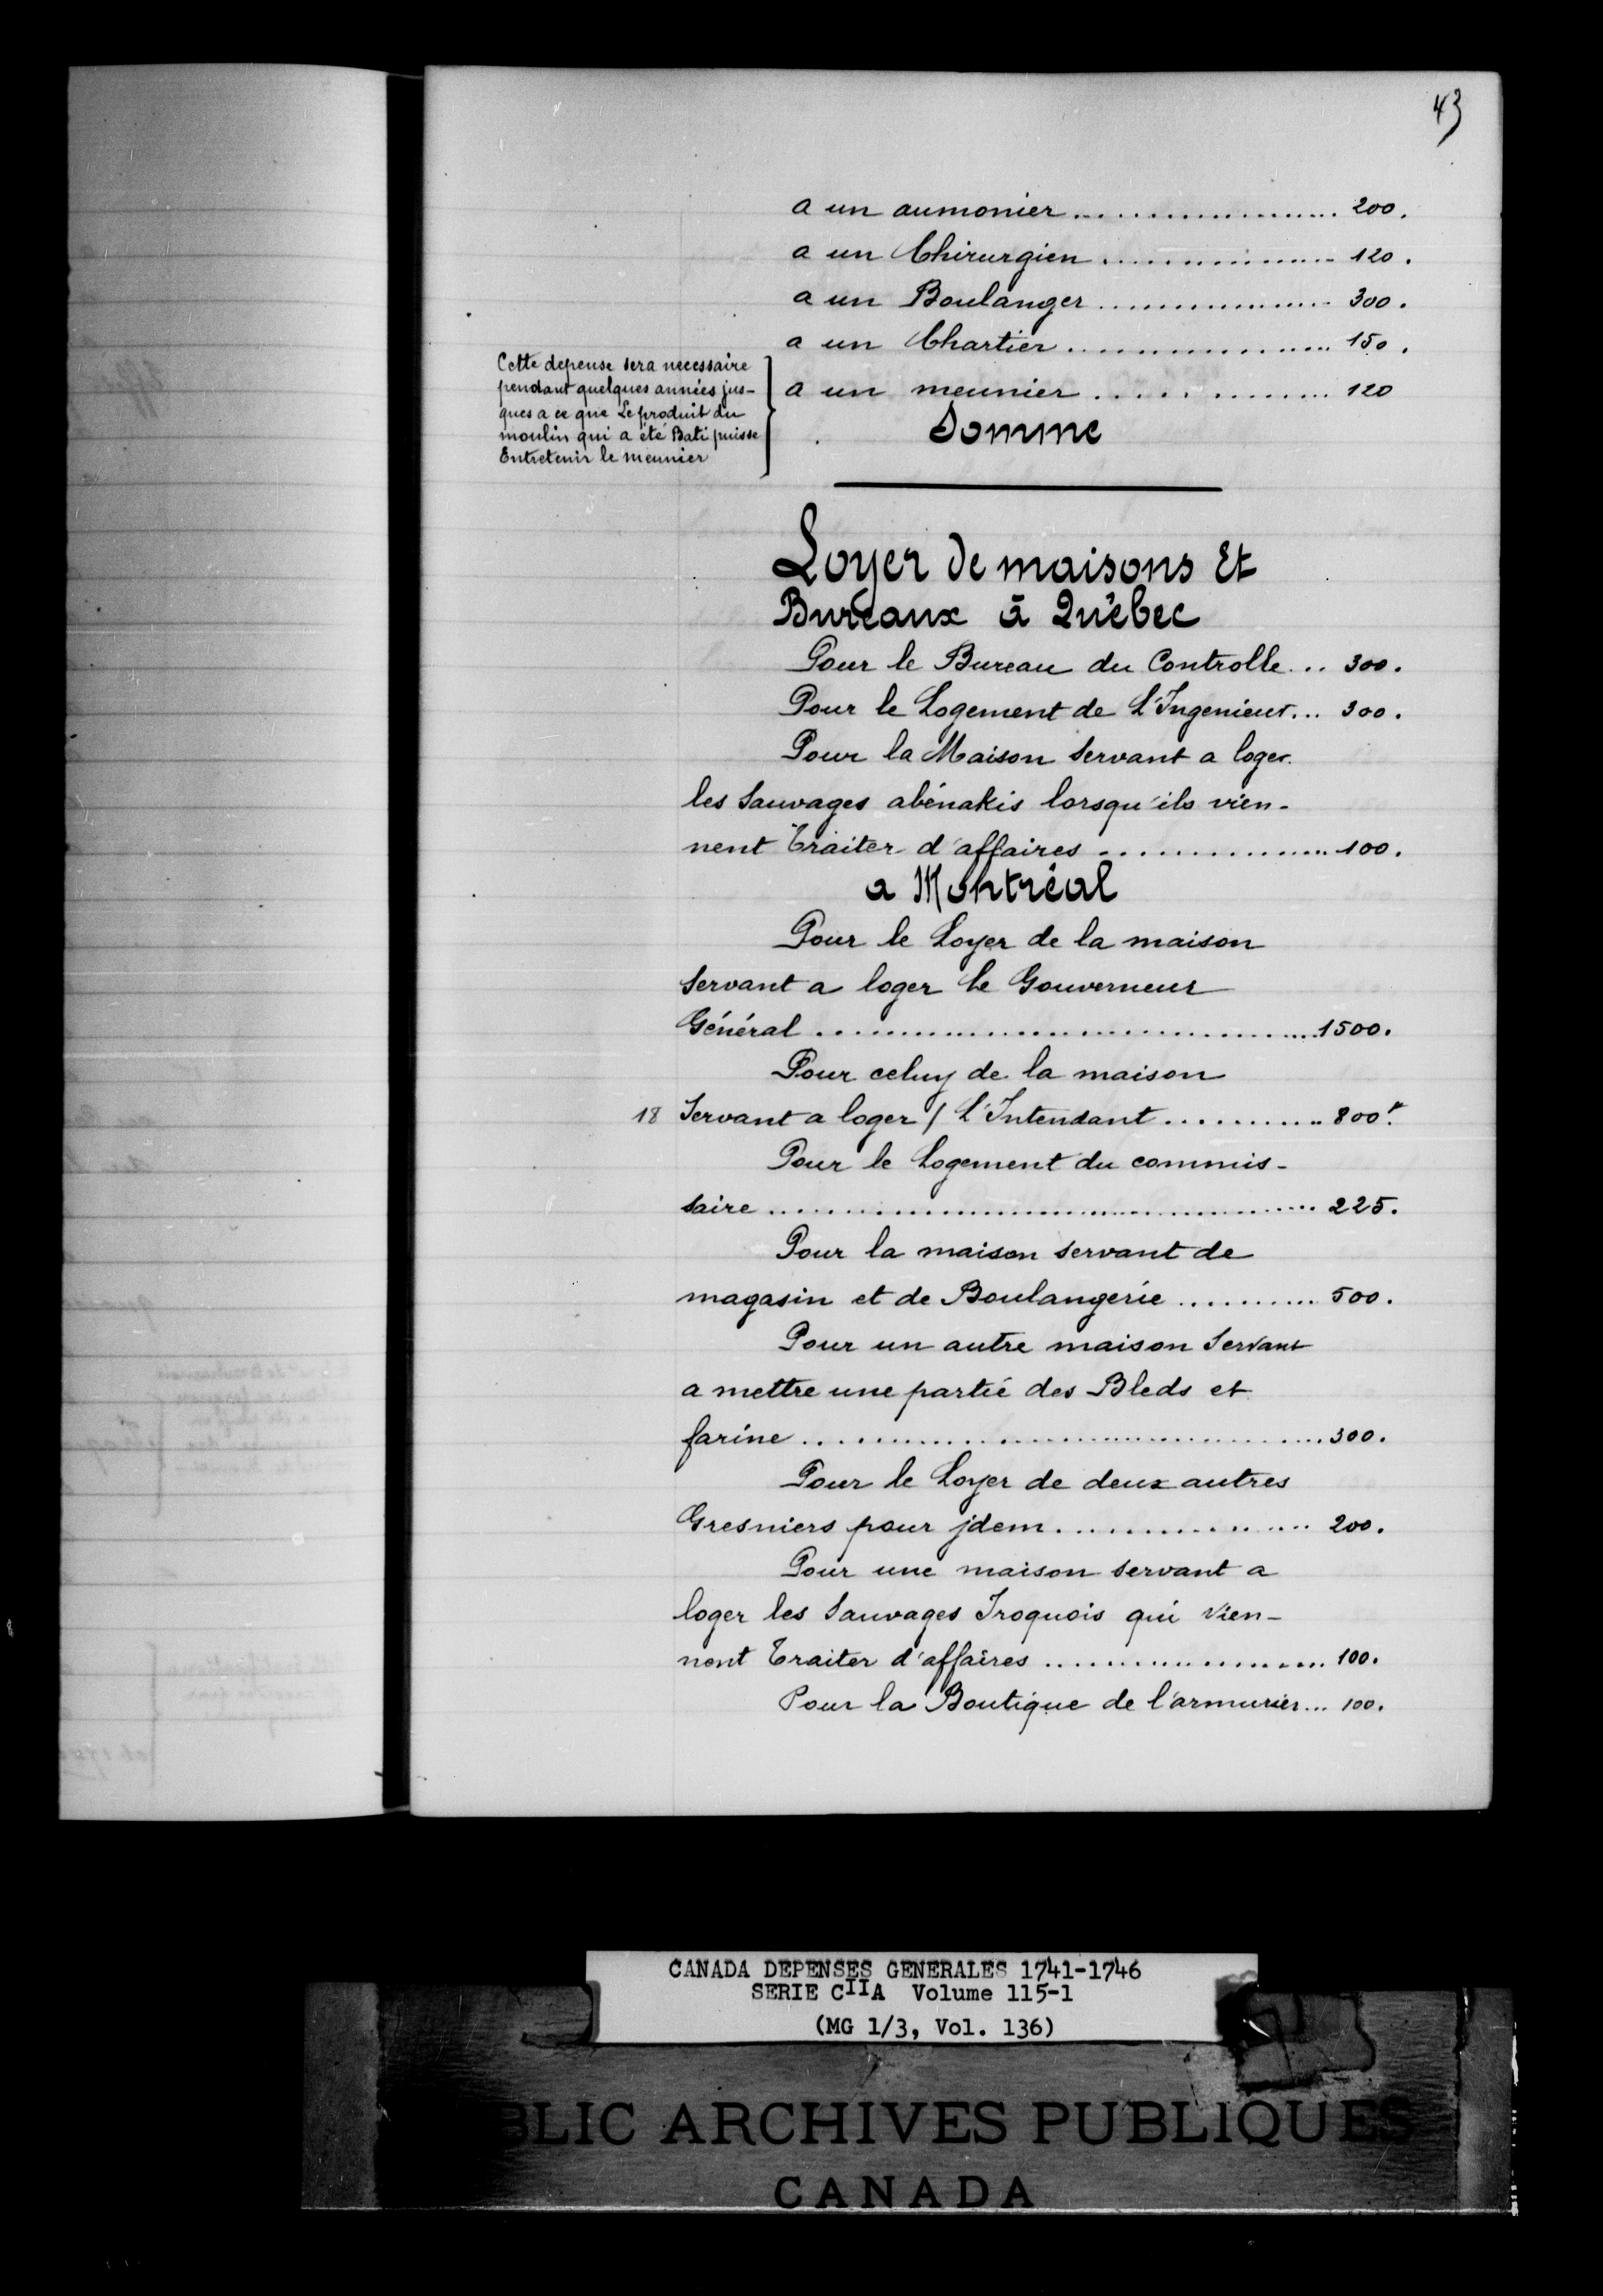 43
a un aumonier .................... 200.
a un Chirurgien .................. 120.
a un Boulanger .................. 300.
a un Chartier .................... 150.
Cette depense sera necessaire
pendant quelques années jus-
ques a ce que Le produit du
moulin qui a été Bati puisse
Entretenir le meunier
a un meunier .................. 120
Somme
Loyer de maisons Et
Bureaux à Québec
Pour le Bureau du Controlle ... 300.
Pour le Logement de L'Ingenieur ... 300.
Pour la Maison Servant a loger
les Sauvages abénakis lorsqu'ils vien-
nent Traiter d'affaires .................. 100.
a Montréal
Pour le Loyer de la maison
Servant a loger le Gouverneur
Général .................................... 1500.
Pour celuy de la maison
18 Servant a loger / L'Intendant ............ 800.
Pour le Logement du commis-
saire .......................................... 225.
Pour la maison servant de
magasin et de Boulangerie ........... 500.
Pour un autre maison Servant
a mettre une partie des Bleds et
farine ....................................... 300.
Pour le Loyer de deux autres
Gresniers pour jdem ................... 200.
Pour une maison servant a
loger les Sauvages Iroquois qui Vien-
nent Traiter d'affaires ..................... 100.
Pour la Boutique de l'armurier ... 100.
CANADA DEPENSES GENERALES 1741-1746
SERIE CIIA Volume 115-1
(MG 1/3, Vol. 136)
BLIC ARCHIVES PUBLIQUES
CANADA